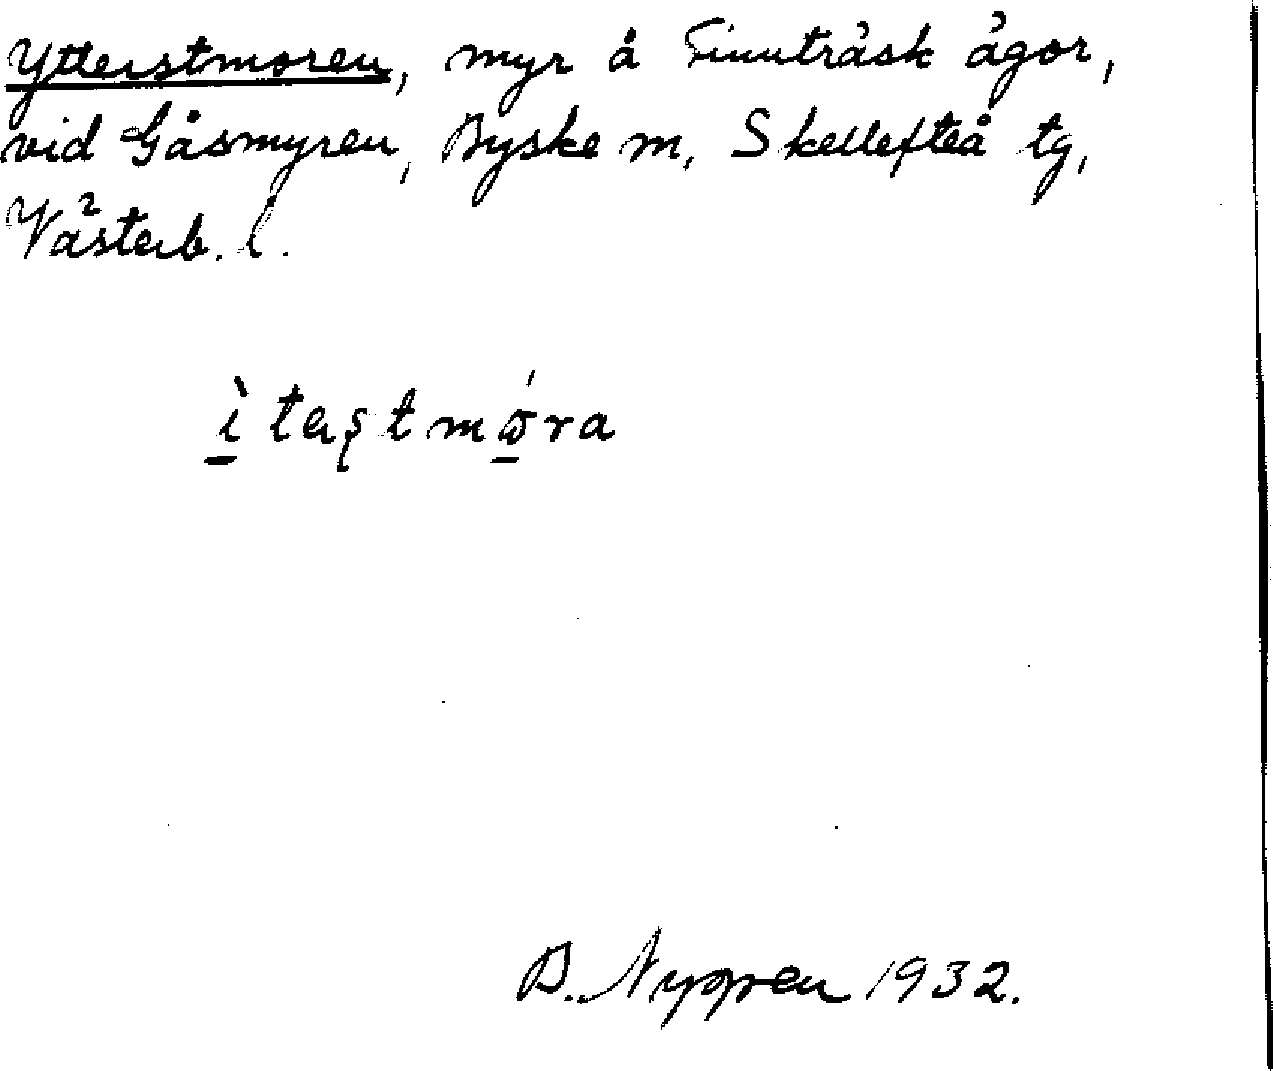 Ytterstmoren, myr å Finnträsk ägor,
vid Gåsmyren, Byske m, Skellefteå tg,
Västerb. l.
ì terştmǿra
B. Nygren 1932.